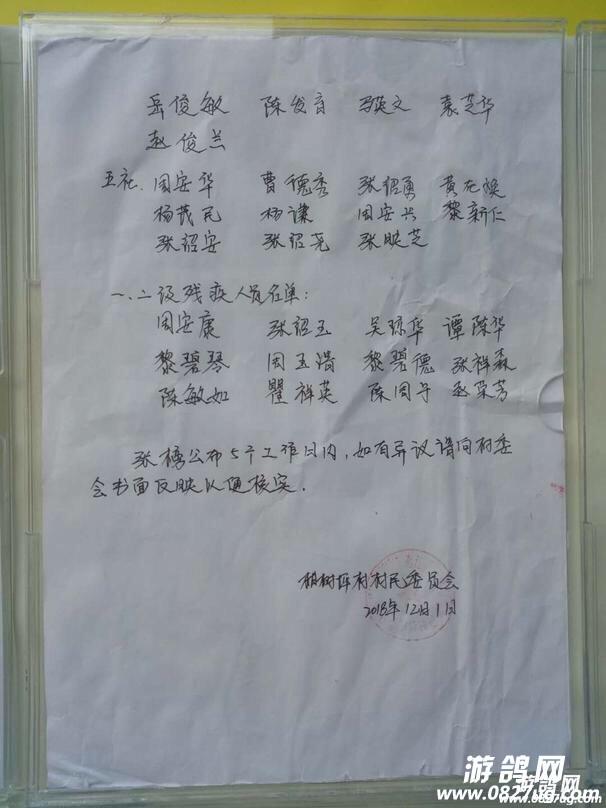 岳俊敏 陈发育 马英文 袁芝华
赵俊兰
五社、周安华 曹德秀 张绍勇 黄在焕
杨茂民 杨谦 周安兴 黎新仁
张绍安 张绍尧 张映芝
一、二级残疾人员名单：
周安康 张绍玉 吴琼华 谭陈华
黎碧琴 周玉浩 黎碧德 张祥森
陈敏如 瞿祥英 陈周于 赵荣芳
张榜公布5个工作日内，如有异议请向村委
会书面反映以便核实.
树坪村村民委员会
2018年12月1日
游鸽网
www.0827ug.com
游鸽网
www.0827ug.com